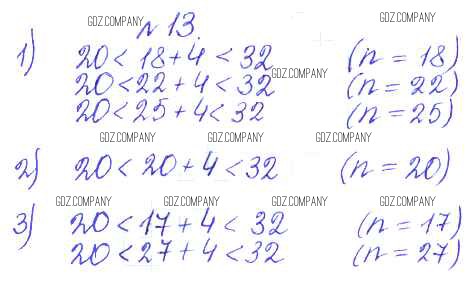 GDZ.COMPANY
GDZ.COMPANY
№ 13.
1) 20 < 18 + 4 < 32 (n = 18)
GDZ.COMPANY
20 < 22 + 4 < 32 (n = 22)
20 < 25 + 4 < 32 (n = 25)
GDZ.COMPANY GDZ.COMPANY GDZ.COMPANY
2) 20 < 20 + 4 < 32 (n = 20)
GDZ.COMPANY GDZ.COMPANY GDZ.COMPANY GDZ.COMPANY
3) 20 < 17 + 4 < 32 (n = 17)
20 < 27 + 4 < 32 (n = 27)